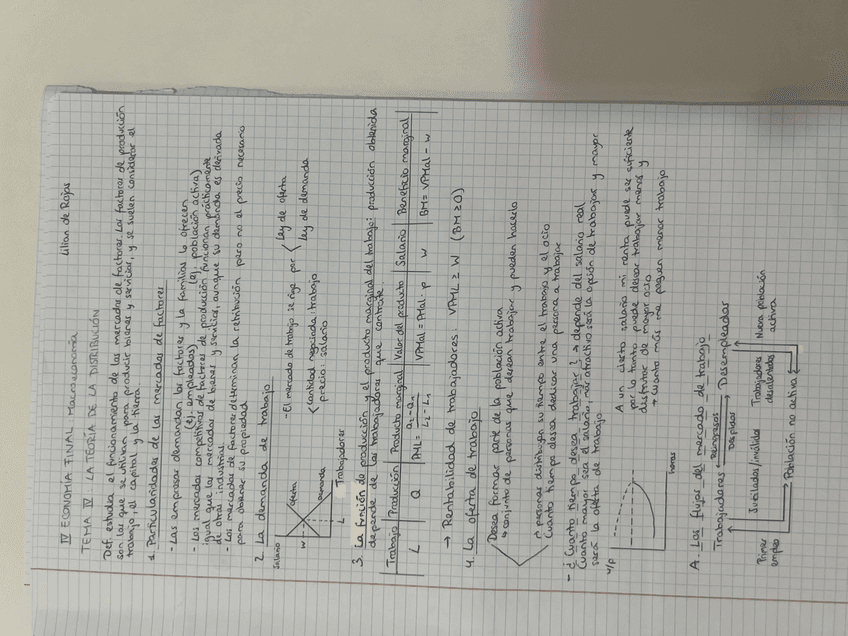 IV ECONOMIA FINAL Macroeconomía Lilian de Rojas
TEMA IV. LA TEORIA DE LA DISTRIBUCIÓN
Def. estudia el funcionamiento de los mercados de factores. Los factores de producción
son los que se utilizan para producir bienes y servicios, y se suelen considerar el
trabajo, el capital y la tierra
1. Particularidades de los mercados de factores
- Las empresas demandan los factores y la familias lo ofrecen
(ej. empleados) (ej. población activa)
- Los mercados competitivos de factores de producción funcionan prácticamente
igual que los mercados de bienes y servicios, aunque su demanda es derivada
de otras industrial
- Los mercados de factores determinan la retribución pero no el precio necesario
para obtener su propiedad
2. La demanda de trabajo
Salario
oferta
demanda
W
L
Trabajadores
- El mercado de trabajo se rige por
Ley de oferta
Ley de demanda
cantidad negociada: trabajo
precio: salario
3. La función de producción y el producto marginal del trabajo: producción obtenida
depende de los trabajadores que contrate.
Trabajo | Producción | Producto marginal | Valor del producto | Salario | Beneficio marginal
L | Q | PML = | VPMal = PMal · p | W | BM = VPMal - W
→ Rentabilidad de trabajadores: VPML ≥ W (BM ≥ 0)
4. La oferta de trabajo
Desea formar parte de la población activa
↳ conjunto de personas que desean trabajar y pueden hacerlo
personas distribuyen su tiempo entre el trabajo y el ocio
Cuanto tiempo desea dedicar una persona a trabajar
- ¿Cuanto tiempo desea trabajar? → depende del salario real
Cuanto mayor sea el salario, más atractivo será la opción de trabajar y mayor
será la oferta de trabajo
W/P
horas
A un cierto salario mi renta puede ser suficiente
por lo tanto puede desear trabajar menos y
disfrutar de mayor ocio
↳ cuanto más me paguen menor trabajo
A. Los flujos del mercado de trabajo
Trabajadores
Reingresos
Despidos
Desempleados
Primer
empleo
Jubilados/inválidos
Trabajadores
desalentados
Nueva población
activa
Población no activa